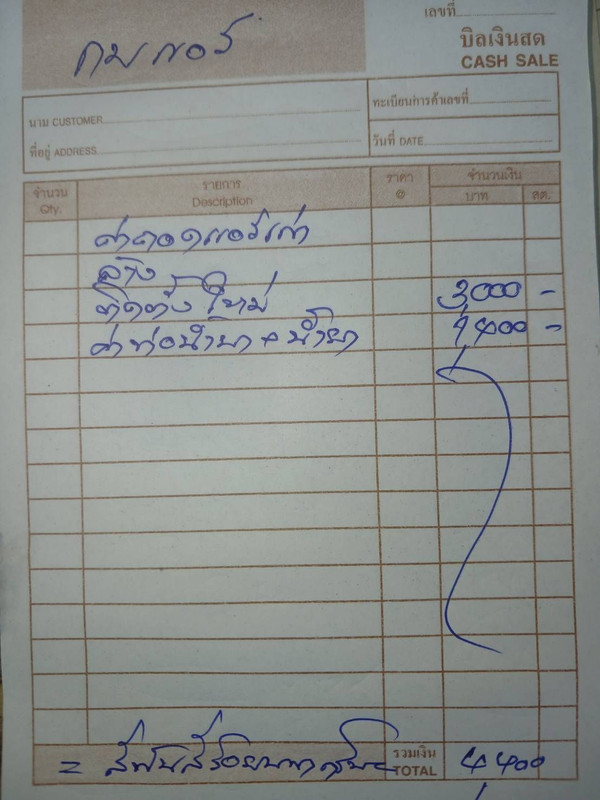 เลขที่
คบแอร์
บิลเงินสด
CASH SALE
นาม CUSTOMER
ทะเบียนการค้าเลขที่
ที่อยู่ ADDRESS
วันที่ DATE
จำนวน Qty. รายการ Description ราคา @ จำนวนเงิน บาท สต.
ค่าถอดแอร์เก่า
ล้าง
ติดตั้งใหม่ 3000 -
ค่าท่อน้ำยา + น้ำยา 1400 -
= สี่พันสี่ร้อยบาทถ้วน = รวมเงิน TOTAL 4400